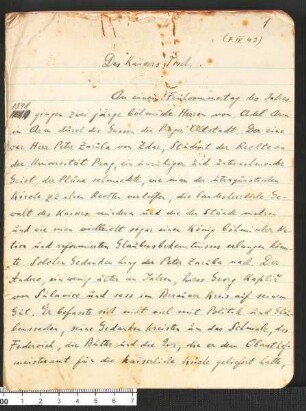 1
(4.IX 43)
Des Kaisers Tisch.
An einem Frühsommertag des Jahres
1598 gingen zwei junge böhmische Herren von Adel Arm
in Arm durch die Gassen der Prager Altstadt. Der eine
war Herr Peter Zaruba von Zdar, Student der Rechte an
der Universität Prag, ein unruhiger und unternehmender
Geist, der Pläne schmiedete, wie man der utraquistischen
Kirche zu ihren Rechten verhelfen, die landesherrliche Ge-
walt des Kaisers mindern und die der Stände mehren
und wie man vielleicht sogar einen König böhmischer Na-
tion und reformierten Glaubensbekenntnisses erlangen könn-
te. Solchen Gedanken hing der Peter Zaruba nach. Der
Andere, ein wenig älter an Jahren, hiess Georg Kapliř
von Sulavice und sass im Berauner Kreis auf seinem
Gut. Er befasste sich nicht viel mit Politik und Glau-
benssachen, seine Gedanken kreisten um das Schmalz, das
Federvieh, die Butter und die Eier, die er dem Oberstkü-
chenmeisteramt für die kaiserliche Küche geliefert hatte,
00 1 2 3 4 5 6 7